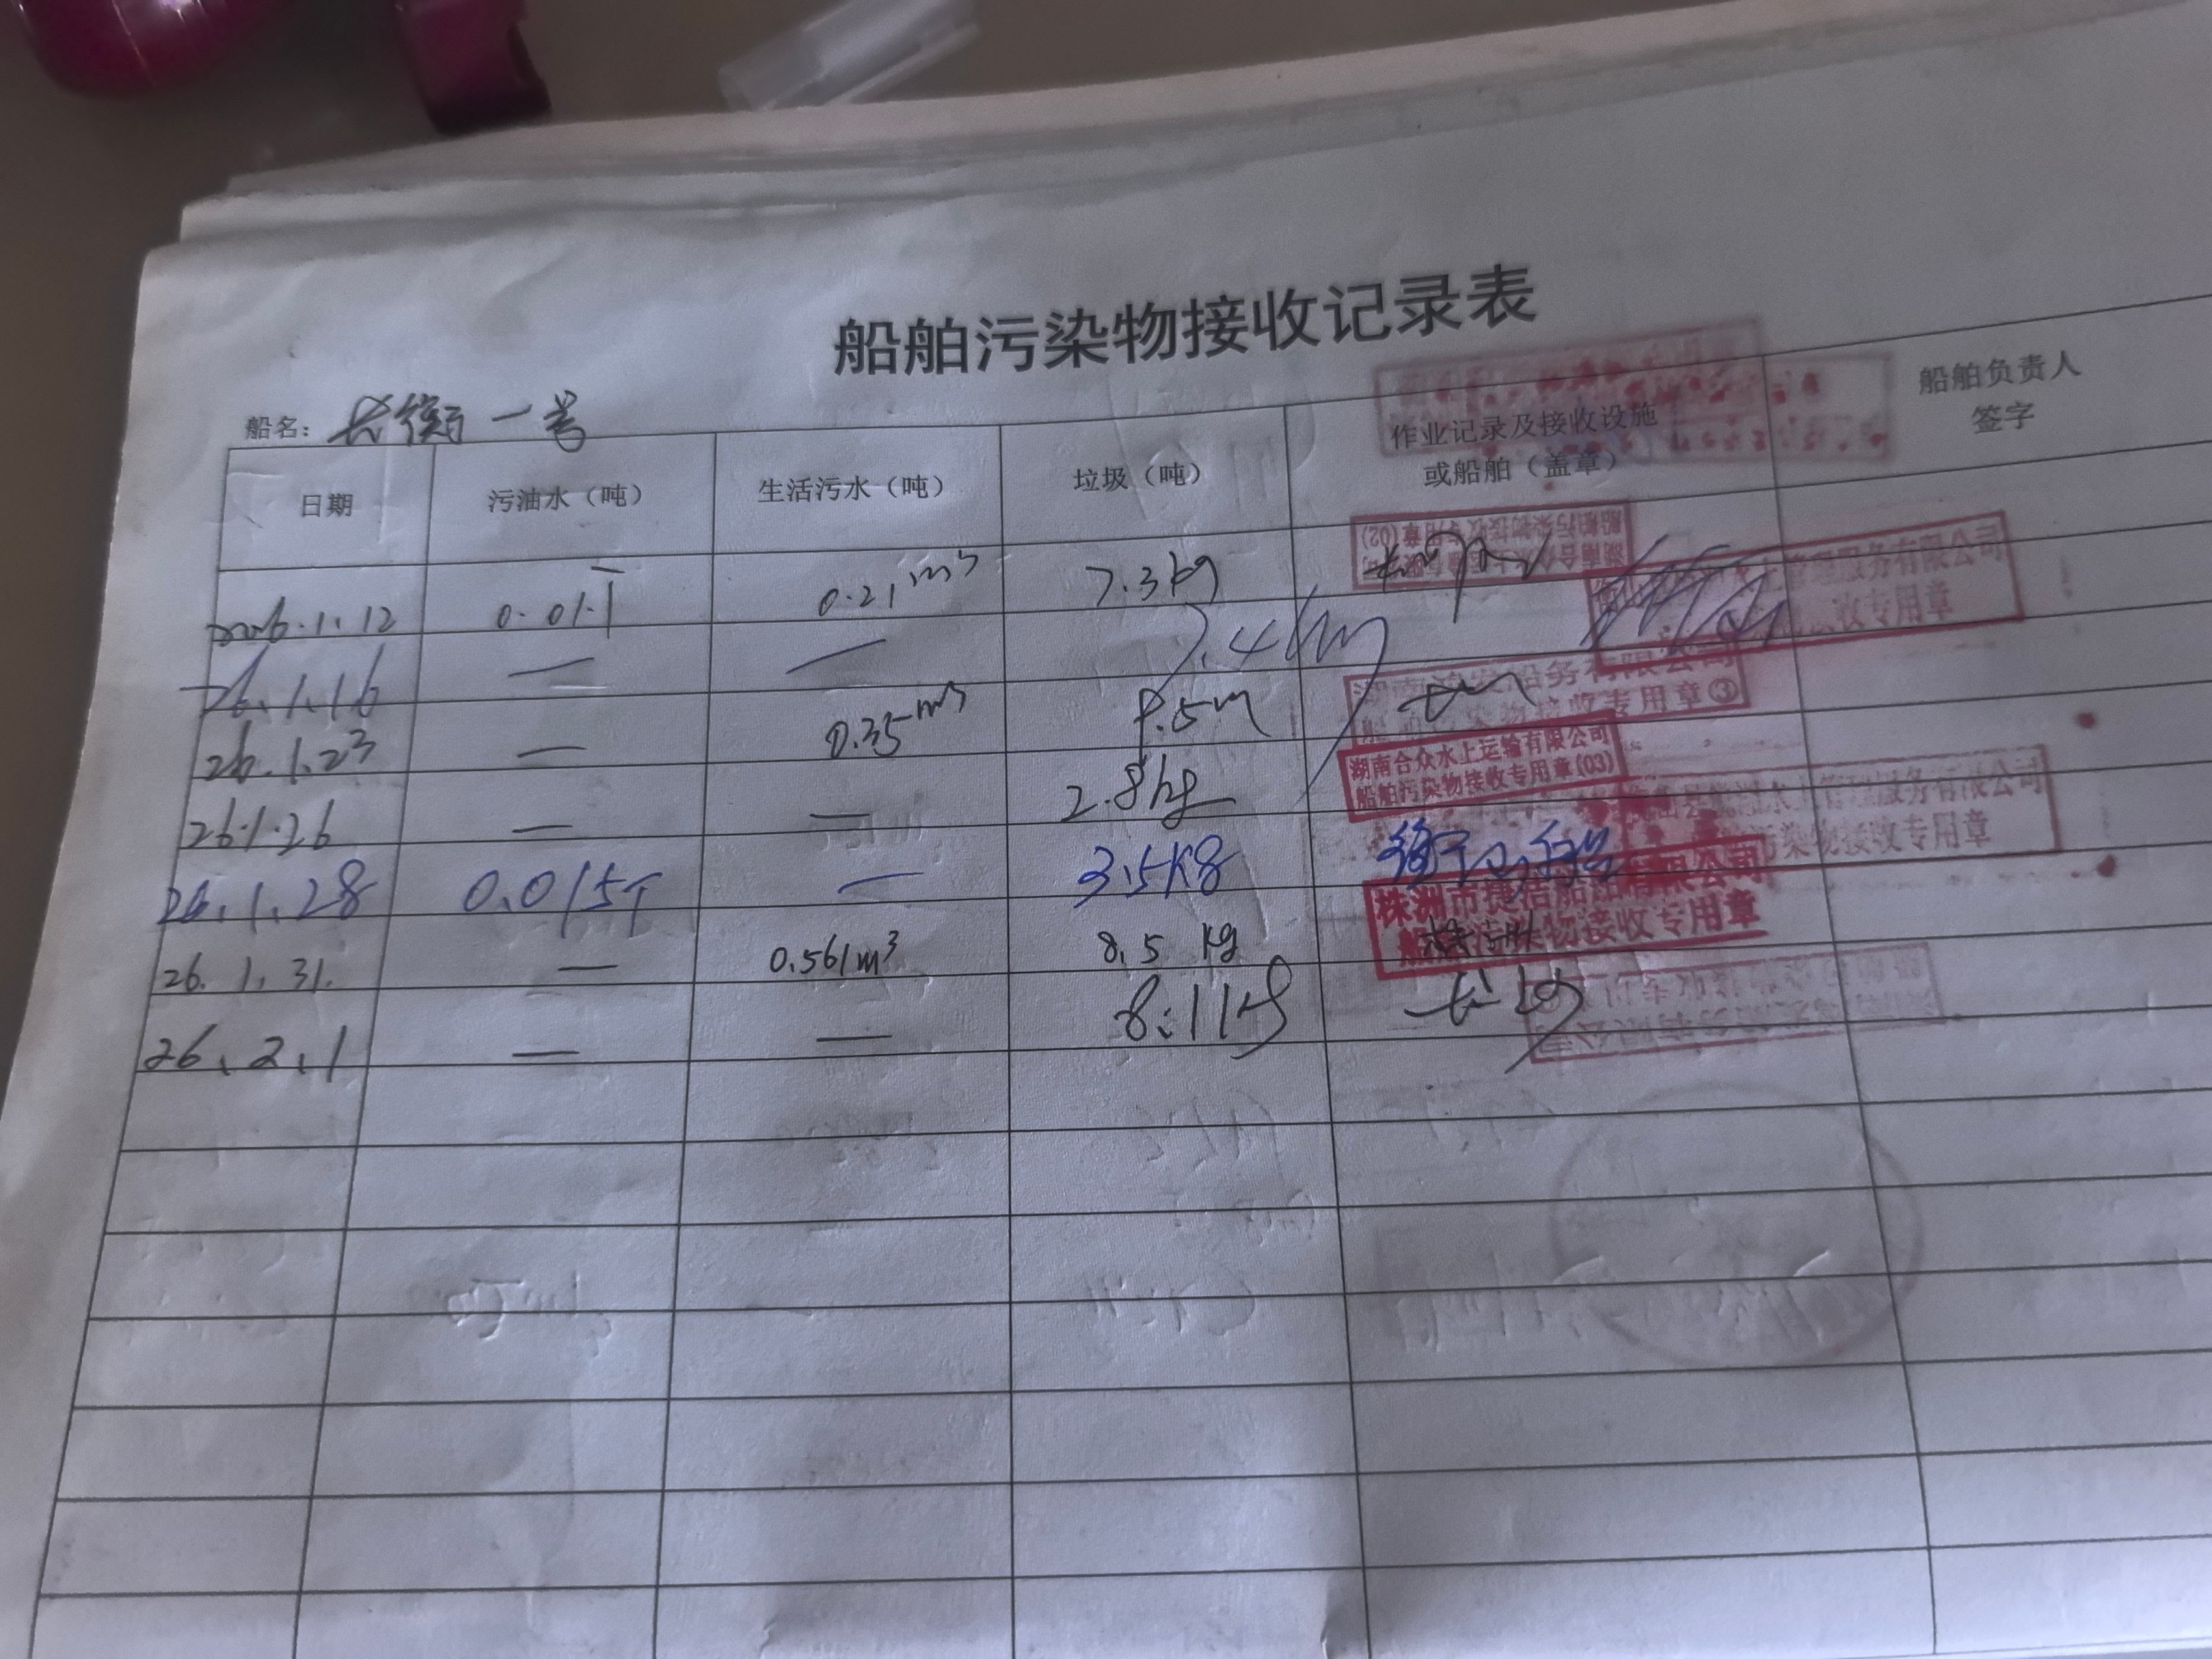 船舶污染物接收记录表
船名：长衡一号
日期 污油水（吨） 生活污水（吨） 垃圾（吨） 作业记录及接收设施或船舶（盖章） 船舶负责人签字
2026.1.12 0.01T 0.21m³ 7.3kg
26.1.16 — — 7.4kg
26.1.23 — 0.35m³
26.1.26 — — 2.8kg
26.1.28 0.015T — 3.5Kg
26.1.31. — 0.561m³ 8.5 kg
26.2.1 — — 8.1kg
船舶污染物接收专用章(02)
管理服务有限公司
收专用章
船务有限公司
污染物接收专用章③
湖南合众水上运输有限公司
船舶污染物接收专用章(03)
水上管理服务有限公司
污染物接收专用章
株洲市捷洁船舶有限公司
船舶污染物接收专用章